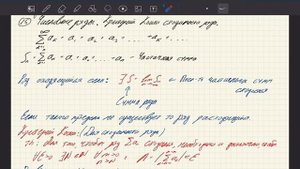 (15) Числовые ряды. Критерий Коши сходимости ряда.
∑ aₙ = a₁ + a₂ + a₃ + ... + aₙ + ...
Sₙ = a₁ + a₂ + ... + aₙ - Частичная сумма
Ряд сходящийся если: ∃ S = lim Sₙ ← Посл-ть частичных сумм
сходится
Сумма ряда
Если такого предела не существует то ряд расходящийся.
Критерий Коши: (Для сходимости ряда)
Для того чтобы ряд ∑a сходился, необходимо и достаточно
∀ε>0 ∃N